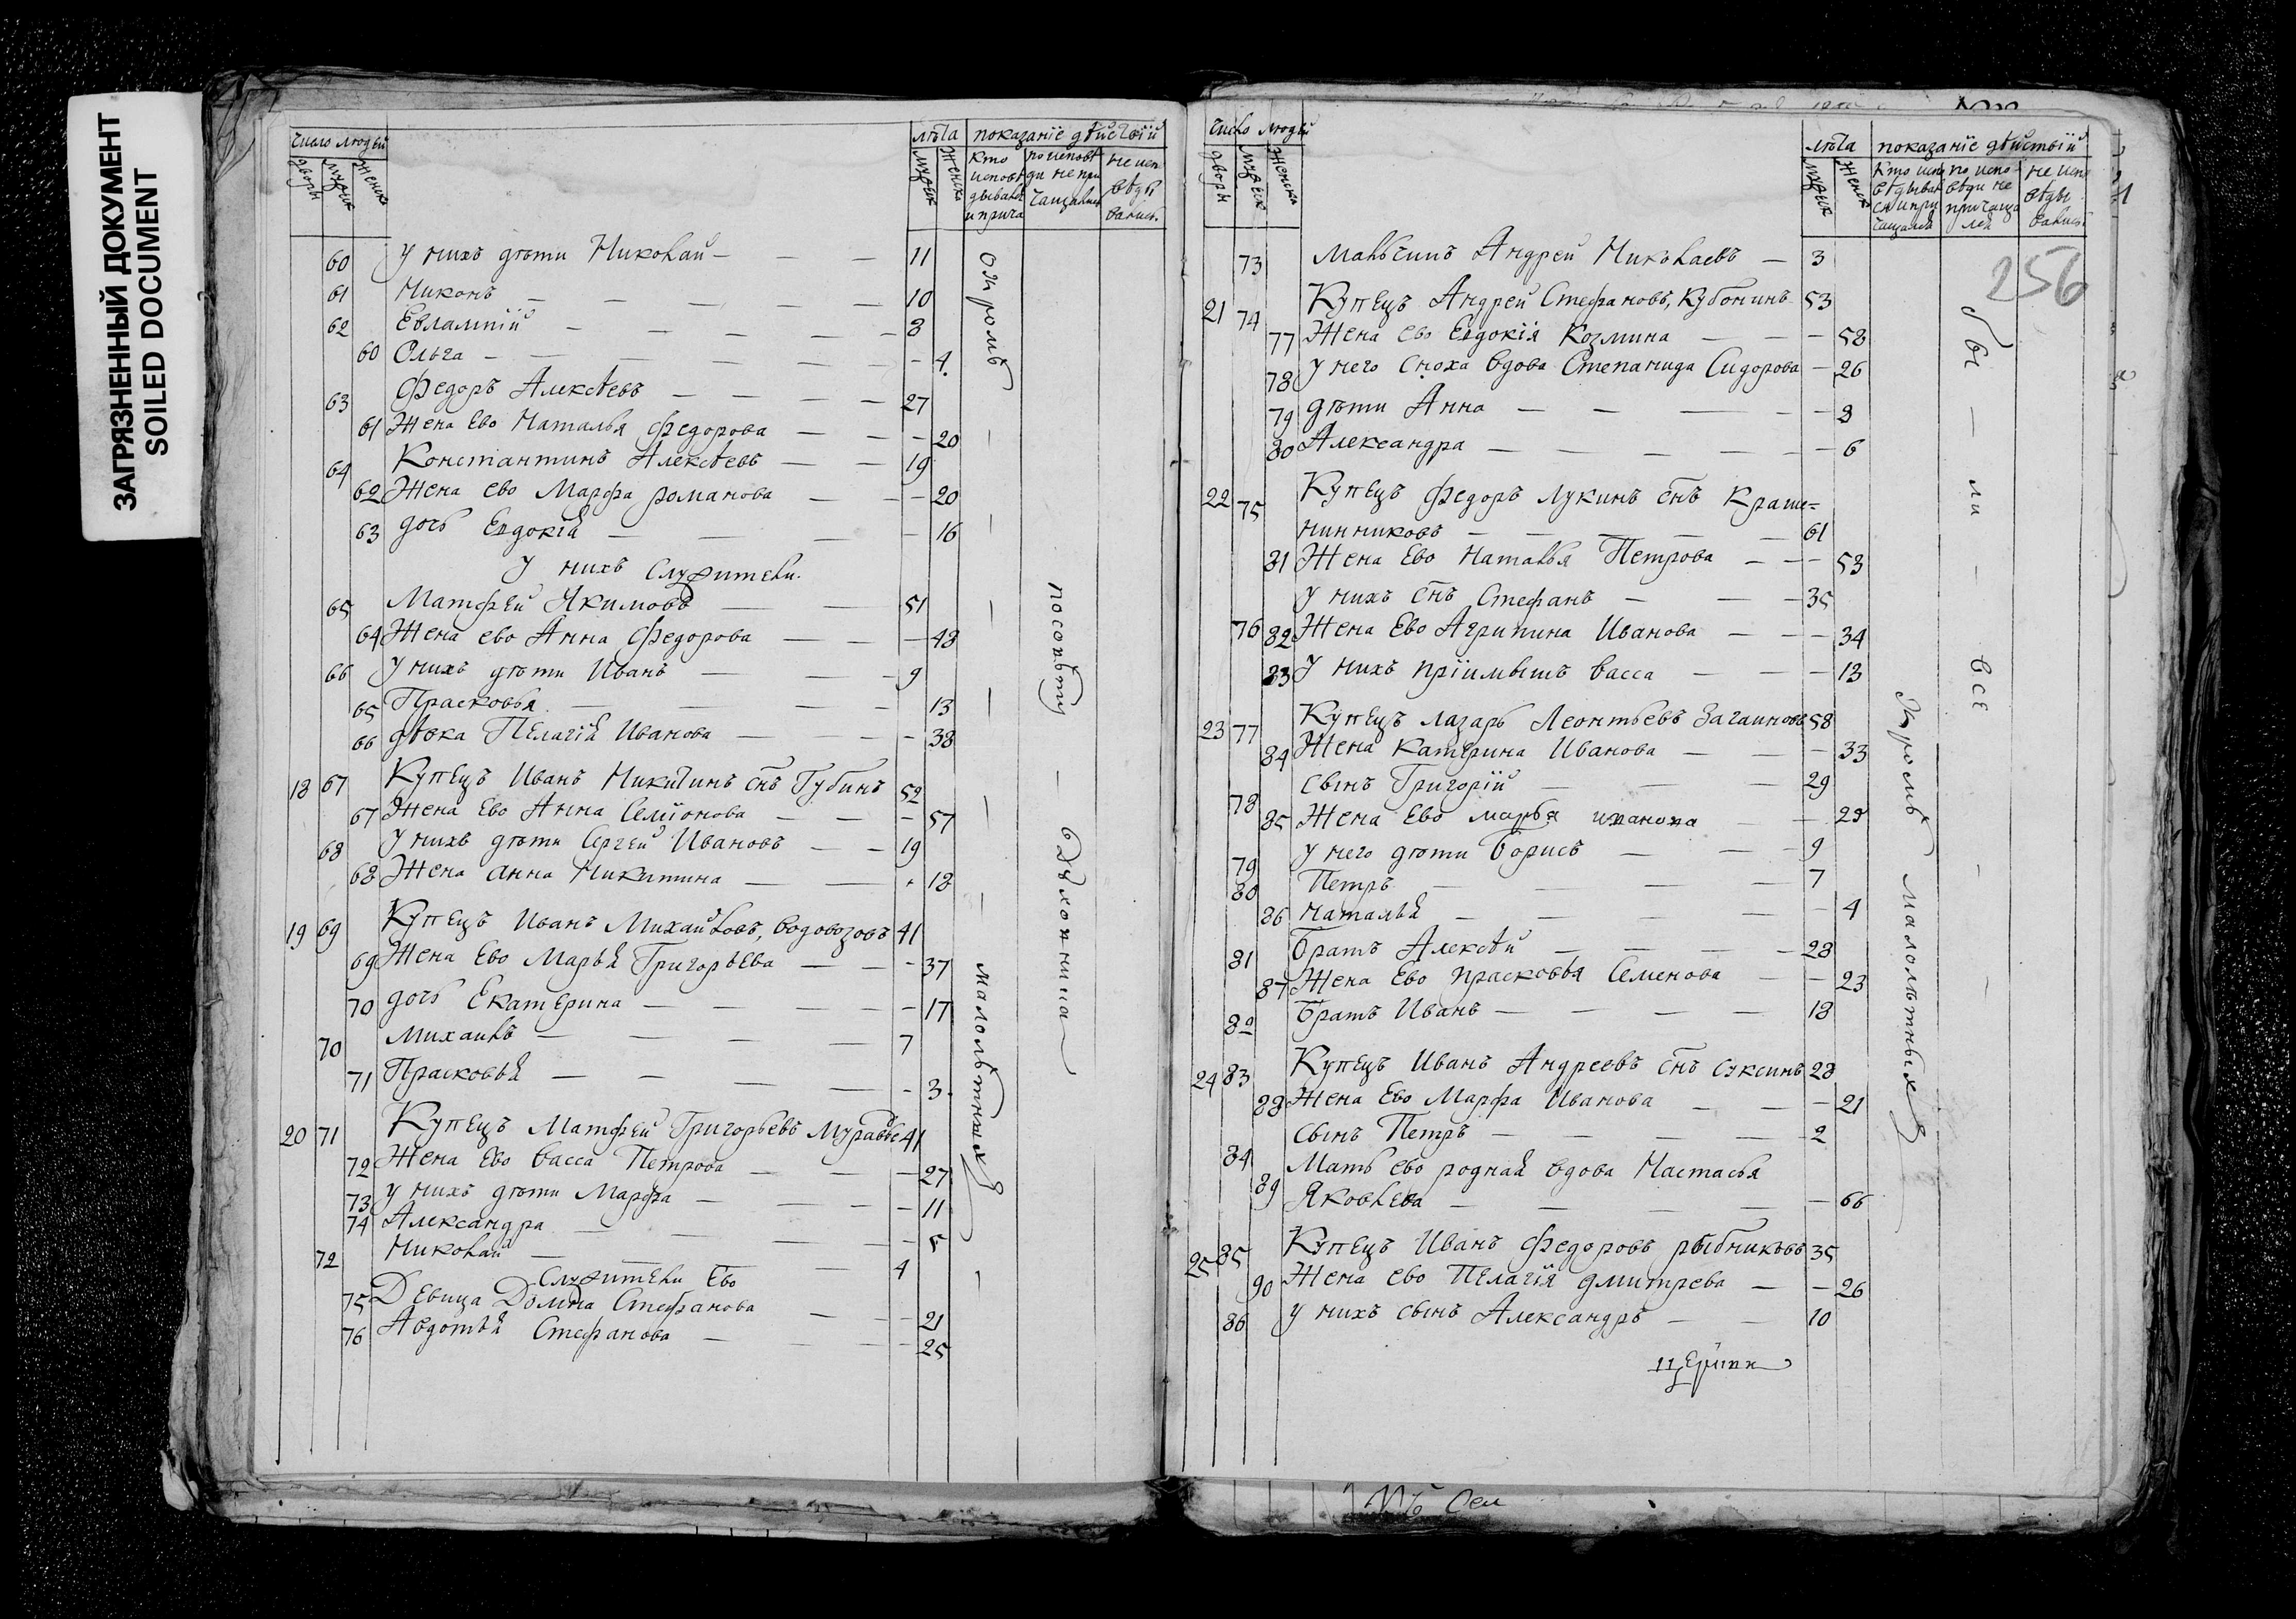 ЗАГРЯЗНЕННЫЙ ДОКУМЕНТ
SOILED DOCUMENT
число людѣй
лѣта показанїе дѣйствїй
дворы
мужеск
женска
мужеск
женска
кто исповѣдывалс и прича
по исповѣди не причащалис
не исповѣдывались
60 У нихъ дѣти Николай 11
61 Никонъ 10
62 Евлампїй 8
60 Ольга 4
63 Федоръ Алексѣевъ 27
61 Жена ево Наталья Федорова 20
64 Константинъ Алексѣевъ 19
62 Жена ево Марфа романова 20
63 дочь Евдокїя 16
У нихъ служители
65 Матфей Якимовъ 51
64 Жена ево Анна Федорова 48
66 У нихъ дѣти Иванъ 9
65 Прасковья 13
66 дѣвка Пелагїя Иванова 38
18 67 Купецъ Иванъ Никитинъ снъ Губинъ 52
67 Жена ево Анна Семїонова 57
68 У нихъ дѣти Сергей Ивановъ 19
68 Жена анна Никитина 18
19 69 Купецъ Иванъ Михайловъ, водовозовъ 41
69 Жена ево Марья Григорьева 37
70 дочь Екатерина 17
70 Михаилъ 7
71 Прасковья 3
20 71 Купецъ Матфей Григорьевъ Муравье 41
72 Жена ево васса Петрова 27
73 У нихъ дѣти Марфа 11
74 Александра 5
72 Николай 4
Служители Ево
75 Девица Домна Стефанова 21
76 Авдотья Стефанова 25
окромѣ
малолѣтныхъ
посовѣту
число людѣй
лѣта показанїе дѣйствїй
дворы
мужеск
женска
мужеск
женска
Кто испо вѣдывал ся и при чащался
по испо вѣди не причаща лся
не испо вѣды вались
256
73 Мальчикъ Андрей Николаевъ 3
21 74 Купецъ Андрей Стефановъ, Кубонинъ 53
77 Жена ево Евдокїя Козмина 58
78 У него сноха вдова Степанида Сидорова 26
79 дѣти Анна 8
80 Александра 6
22 75 Купецъ Федоръ Лукинъ снъ Краше=
нинниковъ 61
81 Жена Ево Наталья Петрова 53
У нихъ снъ Стефанъ 35
76 82 Жена Ево Агрипина Иванова 34
83 У нихъ прїимышъ васса 13
23 77 Купецъ лазарь Леонтьевъ Загаиновъ 58
84 Жена катерина Иванова 33
Сынъ Григорїй 29
78
85 Жена Ево марья иванова 29
79 У него дѣти Борисъ 9
80 Петръ 7
86 Наталья 4
81 Братъ Алексѣй 28
87 Жена Ево прасковья Семенова 23
82 Братъ Иванъ 18
24 83 Купецъ Иванъ Андреевъ снъ суксинъ 28
88 Жена Ево Марфа Иванова 21
Сынъ Петръ 2
84
89 Мать ево родная вдова Настасья
Яковлева 66
25 85 Купецъ Иванъ Федоровъ рыбниковъ 35
90 Жена ево Пелагїя дмитрева 26
86 У нихъ сынъ Александръ 10
бы — ли — все
Кромѣ малолѣтныхъ